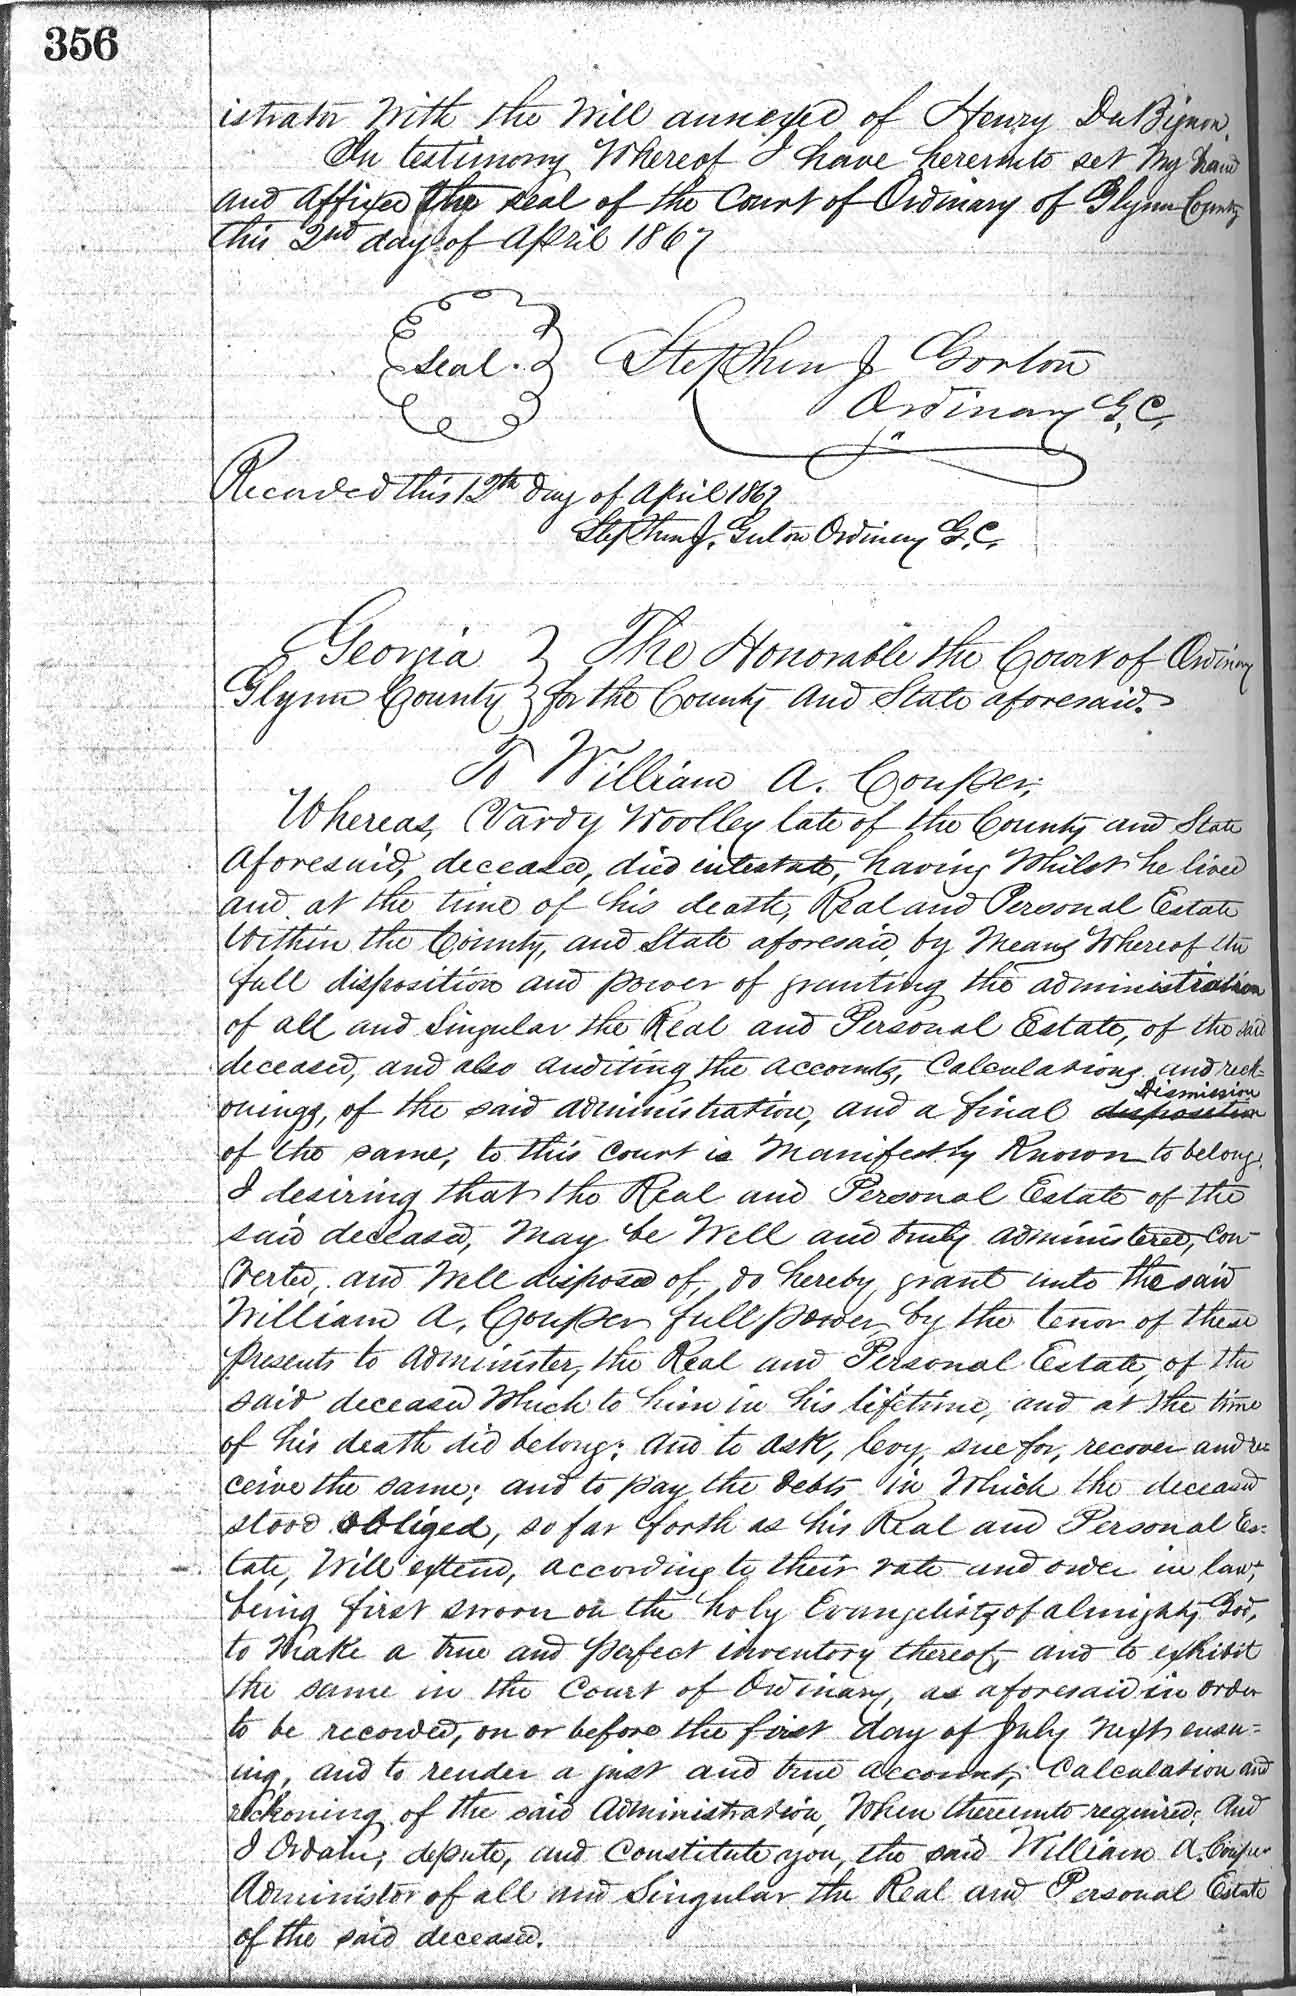 356
istrator With the Will annexed of Henry DuBignon.
In testimony Whereof I have hereunto set My hand
and affixed the seal of the Court of Ordinary of Glynn County
this 2nd day of April 1867
Seal.
Stephen J Gorton
Ordinary G.C.
Recorded this 12th day of April 1867
Stephen J. Gorton Ordinary G.C.
Georgia } The Honorable the Court of Ordinary
Glynn County } for the County and State aforesaid.
To William A. Couper.
Whereas, Vardy Woolley late of the County and State
aforesaid, deceased, died intestate, having Whilst he lived
and at the time of his death, Real and Personal Estate
Within the County, and State aforesaid, by Means Whereof the
full disposition and power of granting the administration
of all and Singular the Real and Personal Estate, of the said
deceased, and also auditing the accounts, Calculations and reck-
onings, of the said administration, and a final disposition Dismission
of the same, to this Court is Manifestly Known to belong.
I desiring that the Real and Personal Estate of the
said deceased, May be Well and truly administered, Con-
verted, and Well disposed of, do hereby grant unto the said
William A. Couper full power, by the tenor of these
presents to administer, the Real and Personal Estate, of the
said deceased Which to him in his lifetime, and at the time
of his death did belong; and to ask, levy, sue for, recover and re-
ceive the same; and to pay the debts in Which the deceased
stood obliged, so far forth as his Real and Personal Es-
tate, Will extend, according to their rate and order in law,
being first sworn on the holy Evangelists of almighty God,
to Make a true and perfect inventory thereof, and to exhibit
the same in the Court of Ordinary, as aforesaid in order
to be recorded, on or before the first day of July next ensu-
ing, and to render a just and true account, Calculation and
reckoning of the said Administration, When thereunto required; And
I Ordain, depute, and Constitute you, the said William A. Couper
Administor of all and Singular the Real and Personal Estate
of the said deceased.